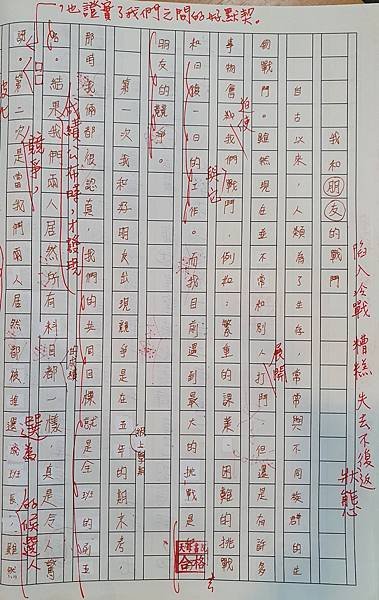 陷入冷戰 糟糕 失去不復返
狀態
我和朋友的戰鬥
自古以來,人類為了生存,常常與不同族群的生
物戰鬥。雖然現在並不常和別人打鬥,但還是有許多
展開
事物會我們戰鬥,例如:繁重的課業、困難的挑戰
迫使
和日復一日的工作。而我目前遇到最大的挑戰是
朋友的競爭。
第一次我和好朋友出現競爭是在五年的期末考,
那時我倆都很認真,我們的共同目標就是全班的前五
成績公布時,才發現
名。結果我們兩人居然所有科目都一樣,真是令人驚
競爭,
選為
的候選人
訝。第二次是當我們兩人居然都被進選成班長,雖然
,也證實了我們之間的好默契。
合格